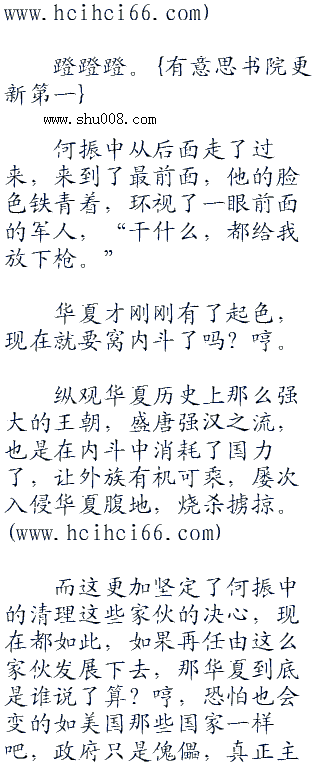 www.hcihci66.com)
蹬蹬蹬。{有意思书院更
新第一}
www.shu008.com
何振中从后面走了过
来，来到了最前面，他的脸
色铁青着，环视了一眼前面
的军人，“干什么，都给我
放下枪。”
华夏才刚刚有了起色，
现在就要窝内斗了吗？哼。
纵观华夏历史上那么强
大的王朝，盛唐强汉之流，
也是在内斗中消耗了国力
了，让外族有机可乘，屡次
入侵华夏腹地，烧杀掳掠。
(www.hcihci66.com)
而这更加坚定了何振中
的清理这些家伙的决心，现
在都如此，如果再任由这么
家伙发展下去，那华夏到底
是谁说了算？哼，恐怕也会
变的如美国那些国家一样
吧，政府只是傀儡，真正主